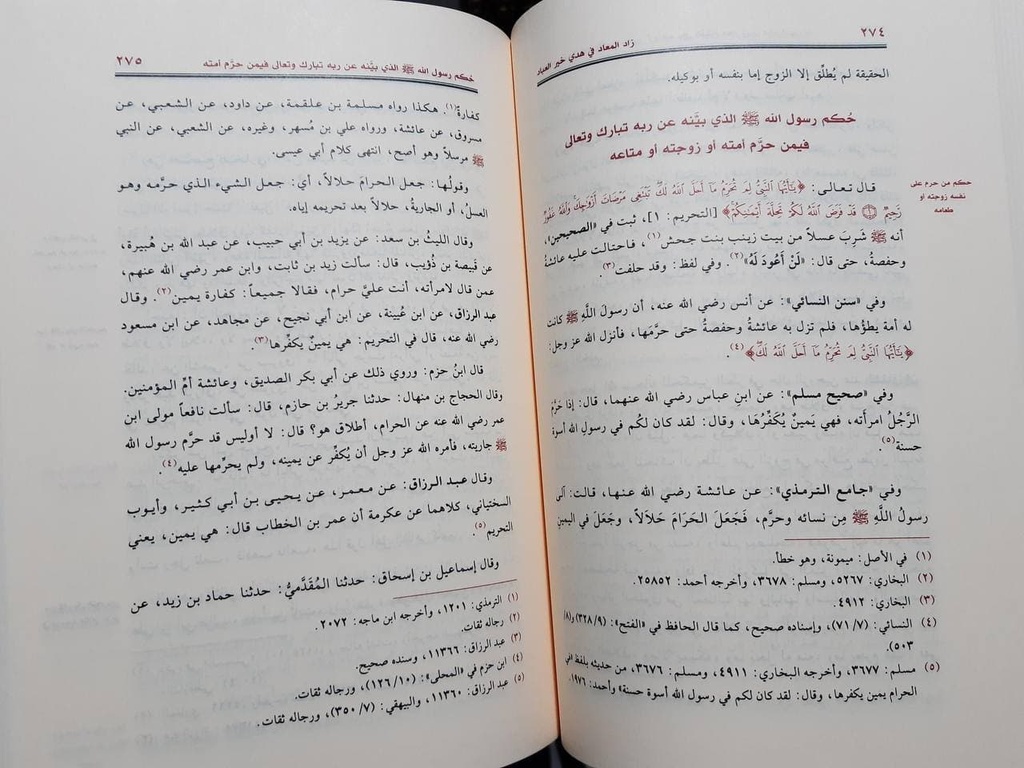 ٢٧٤
زاد المعاد في هدي خير العباد
الحقيقة لم يُطلِّق إلا الزوج إما بنفسه أو بوكيله.
حُكم رسول الله ﷺ الذي بيَّنه عن ربه تبارك وتعالى
فيمن حرَّم أمته أو زوجته أو متاعه
حكم من حرم على
نفسه زوجته أو
طعامه
قال تعالى: ﴿يَٰٓأَيُّهَا ٱلنَّبِىُّ لِمَ تُحَرِّمُ مَآ أَحَلَّ ٱللَّهُ لَكَۖ تَبْتَغِى مَرْضَاتَ أَزْوَٰجِكَۚ وَٱللَّهُ غَفُورٌ
رَّحِيمٌ ۝١ قَدْ فَرَضَ ٱللَّهُ لَكُمْ تَحِلَّةَ أَيْمَٰنِكُمْۚ﴾ [التحريم: ١]، ثبت في «الصحيحين»،
أنه ﷺ شَرِبَ عسلاً من بيت زينب بنت جحش(١)، فاحتالت عليه عائشة
وحفصة، حتى قال: «لَنْ أَعُودَ لَهُ»(٢). وفي لفظ: وقد حلفت(٣).
وفي «سنن النسائي»: عن أنس رضي الله عنه، أن رسولَ اللَّهِ ﷺ كانت
له أمة يطؤُها، فلم تزل به عائشةُ وحفصةُ حتى حرَّمها، فأنزل الله عز وجل:
﴿يَٰٓأَيُّهَا ٱلنَّبِىُّ لِمَ تُحَرِّمُ مَآ أَحَلَّ ٱللَّهُ لَكَ﴾(٤).
وفي «صحيح مسلم»: عن ابنِ عباس رضي الله عنهما، قال: إذا حَرَّمَ
الرَّجُلُ امرأته، فهي يَمينٌ يُكَفِّرُهَا، وقال: لقد كان لكم في رسولِ الله أسوة
حسنة(٥).
وفي «جامع الترمذي»: عن عائشة رضي الله عنها، قالت: آلى
رسولُ اللَّهِ ﷺ من نسائه وحرَّم، فَجَعَلَ الحَرَامَ حَلَالاً، وَجَعَلَ في اليَمِينِ
(١) في الأصل: ميمونة، وهو خطأ.
(٢) البخاري: ٥٢٦٧، ومسلم: ٣٦٧٨، وأخرجه أحمد: ٢٥٨٥٢.
(٣) البخاري: ٤٩١٢.
(٤) النسائي: (٧١/٧)، وإسناده صحيح، كما قال الحافظ في «الفتح»: (٣٢٨/٩) و(٨/
٥٠٣).
(٥) مسلم: ٣٦٧٧، وأخرجه البخاري: ٤٩١١، ومسلم: ٣٦٧٦، من حديثه بلفظ «في
الحرام يمين يكفرها، وقال: لقد كان لكم في رسول الله أسوة حسنة» وأحمد: ١٩٧٦.
حُكم رسول الله ﷺ الذي بيَّنه عن ربه تبارك وتعالى فيمن حرَّم أمته
٢٧٥
كفارةً(١). هكذا رواه مسلمة بن علقمة، عن داود، عن الشعبي، عن
مسروق، عن عائشة، ورواه علي بن مُسهر، وغيره، عن الشعبي، عن النبي
ﷺ مرسلاً وهو أصح، انتهى كلام أبي عيسى.
وقولُها: جعل الحرامَ حلالاً، أي: جعل الشيء الذي حرَّمه وهو
العسلُ، أو الجاريةُ، حلالاً بعد تحريمه إياه.
وقال الليثُ بن سعد: عن يزيد بن أبي حبيب، عن عبد الله بن هُبيرة،
عن قَبيصة بن ذُؤيب، قال: سألت زيد بن ثابت، وابن عمر رضي الله عنهم،
عمن قال لامرأته، أنت عليَّ حرام، فقالا جميعاً: كفارة يمين(٢). وقال
عبد الرزاق، عن ابن عُيينة، عن ابن أبي نجيح، عن مجاهد، عن ابن مسعود
رضي الله عنه، قال في التحريم: هي يمينٌ يكفِّرها(٣).
قال ابنُ حزم: وروي ذلك عن أبي بكر الصديق، وعائشة أمّ المؤمنين.
وقال الحجاج بن منهال: حدثنا جريرُ بن حازم، قال: سألت نافعاً مولى ابن
عمر رضي الله عنه عن الحرام، أطلاق هو؟ قال: لا أوليس قد حرَّم رسول الله
ﷺ جاريته، فأمره الله عز وجل أن يُكفِّر عن يمينه، ولم يحرِّمها عليه(٤).
وقال عبد الرزاق: عن معمر، عن يحيى بن أبي كثير، وأيوب
السختياني، كلاهما عن عكرمة أن عمر بن الخطاب قال: هي يمين، يعني
التحريم(٥).
وقال إسماعيل بن إسحاق: حدثنا المُقَدَّميُّ: حدثنا حماد بن زيد، عن
(١) الترمذي: ١٢٠١، وأخرجه ابن ماجه: ٢٠٧٢.
(٢) رجاله ثقات.
(٣) عبد الرزاق: ١١٣٦٦، وسنده صحيح.
(٤) ابن حزم في «المحلى»: (١٢٦/١٠)، ورجاله ثقات.
(٥) عبد الرزاق: ١١٣٦٠، والبيهقي: (٣٥٠/٧)، ورجاله ثقات.